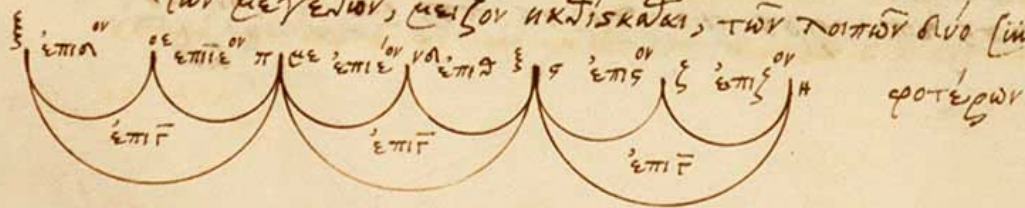 τῶν μεγεθῶν, μεῖζον τῶν λοιπῶν δύο
ξ ἐπιδ ον οε ἐπιιε ον π με ἐπιέ ον νδ ἐπιθ ξ ς ἐπις ον ζ ἐπιζ ον η
φοτέρων
ἐπιγ̄ ἐπιγ̄ ἐπιγ̄